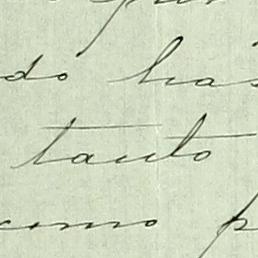 do has
tanto
como p